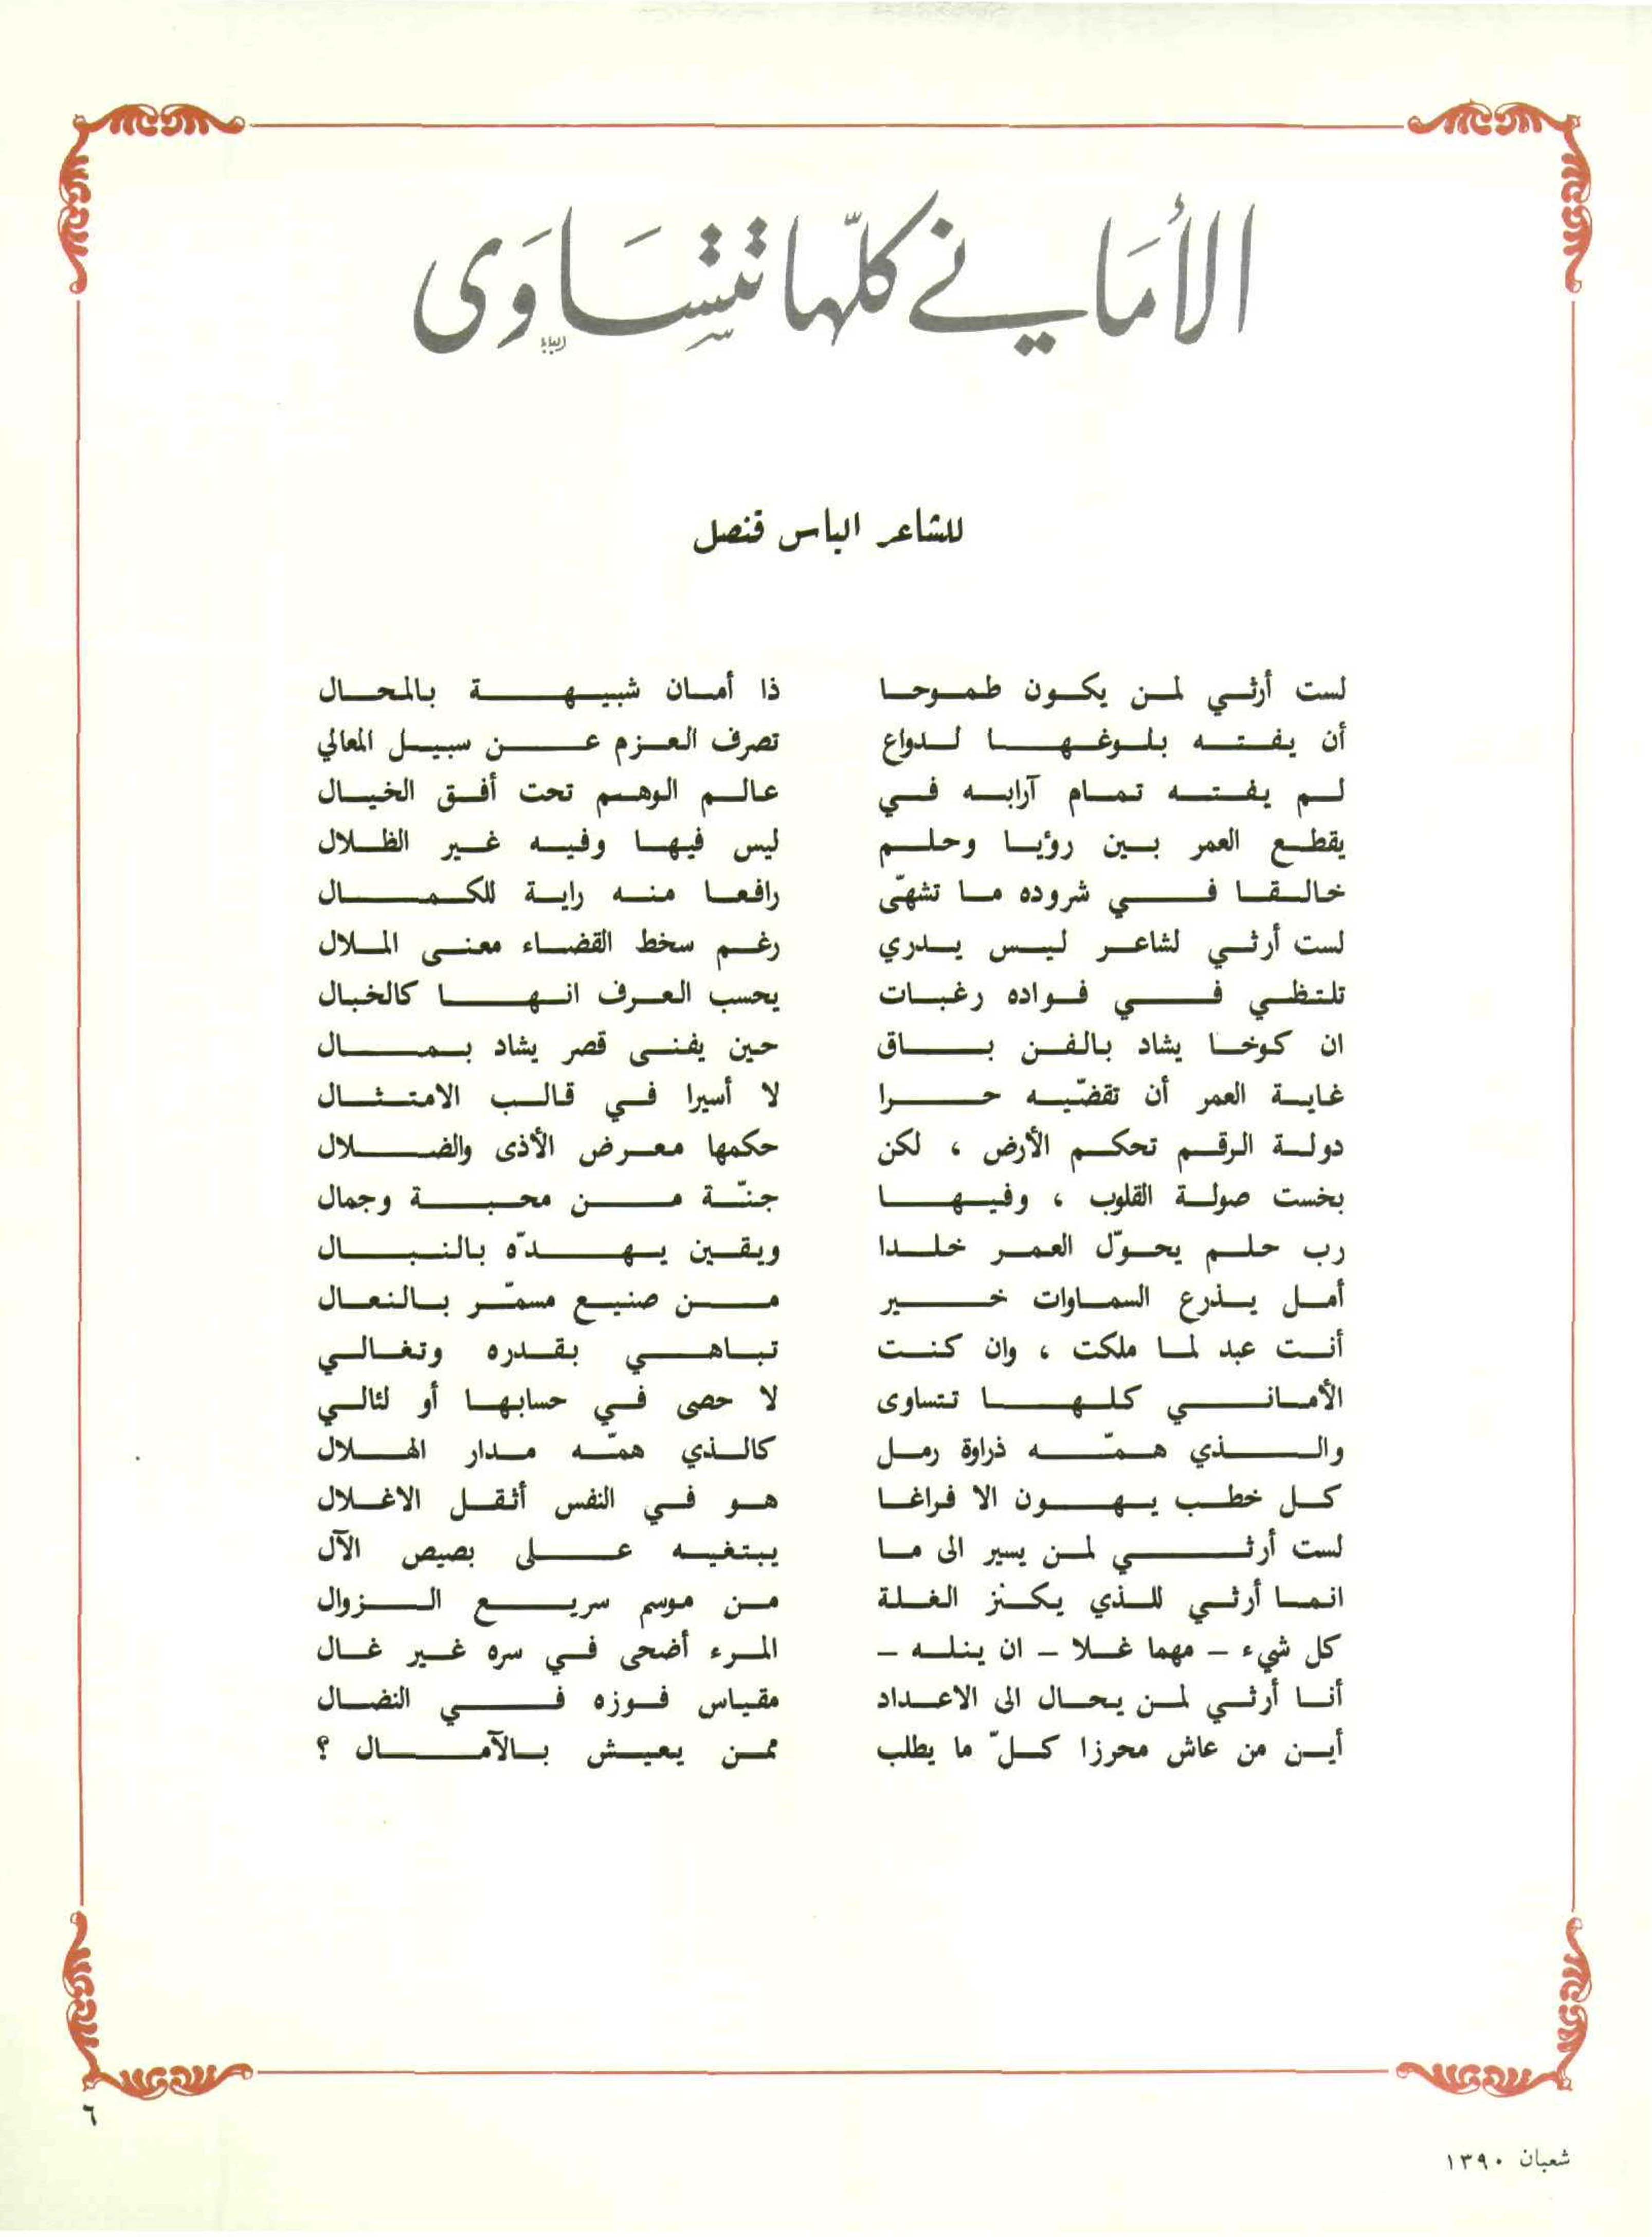 الأماني كلّها تتسَاوَى
للشاعر الياس قنصل
لست أرثي لمن يكون طموحا ذا أمان شبيهة بالمحال
أن يفته بلوغها لدواع تصرف العزم عن سبيل المعالي
لم يفته تمام آرابه في عالم الوهم تحت أفق الخيال
يقطع العمر بين رؤيا وحلم ليس فيها وفيه غير الظلال
خالقا في شروده ما تشهّى رافعا منه راية للكمال
لست أرثي لشاعر ليس يدري رغم سخط القضاء معنى الملال
تلتظي في فواده رغبات يحسب العرف انها كالخبال
ان كوخا يشاد بالفن باق حين يفنى قصر يشاد بمال
غاية العمر أن تقضّيه حرا لا أسيرا في قالب الامتثال
دولة الرقم تحكم الأرض ، لكن حكمها معرض الأذى والضلال
بخست صولة القلوب ، وفيها جنّة من محبة وجمال
رب حلم يحوّل العمر خلدا ويقين يهدّه بالنبال
أمل يذرع السماوات خير من صنيع مسمّر بالنعال
أنت عبد لما ملكت ، وان كنت تباهي بقدره وتغالي
الأماني كلها تتساوى لا حصى في حسابها أو لئالي
والذي همّه ذراوة رمل كالذي همّه مدار الهلال
كل خطب يهون الا فراغا هو في النفس أثقل الاغلال
لست أرثي لمن يسير الى ما يبتغيه على بصيص الآل
انما أرثي للذي يكنز الغلة من موسم سريع الزوال
كل شيء – مهما غلا – ان ينله – المرء أضحى في سره غير غال
أنا أرثي لمن يحال الى الاعداد مقياس فوزه في النضال
أين من عاش محرزا كلّ ما يطلب ممن يعيش بالآمال ؟
٦
شعبان ١٣٩٠